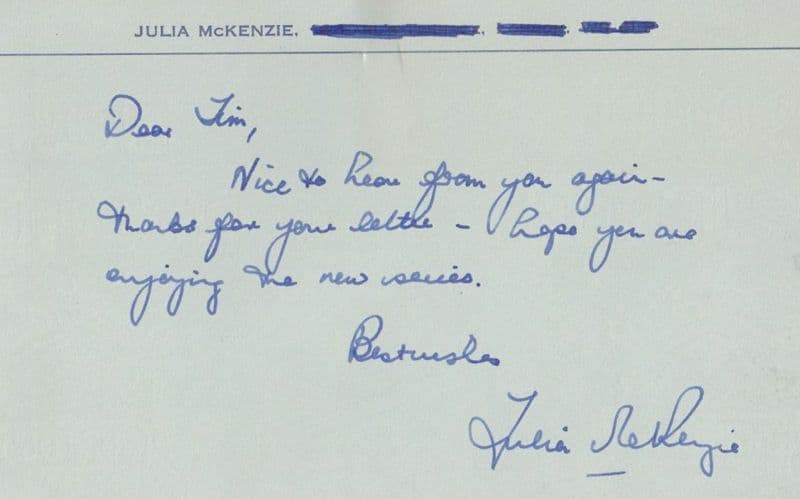 JULIA McKENZIE.
Dear Tim,
Nice to hear from you again –
thanks for your letter – hope you are
enjoying the new series.
Best wishes
Julia McKenzie